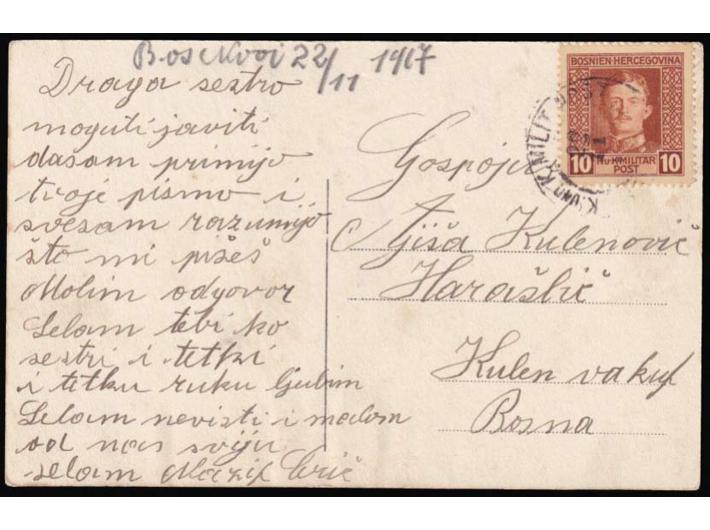 22/11 1917
Draga sestro
moguti javiti
dasam primijo
tvoje pismo i
svesam razumijo
što mi pišeš
Molim odgovor
Selam tebi ko
sestri i tetki
i tetku ruku ljubim
Selam nevisti i malom
od nas sviju
selam
BOSNIEN-HERCEGOVINA
10 K.u.K.MILITÄR POST 10
K.UND K.MILIT. POST
Gospoja
Ajiša Kulenović
Harašlić
Kulen vakuf
Bosna